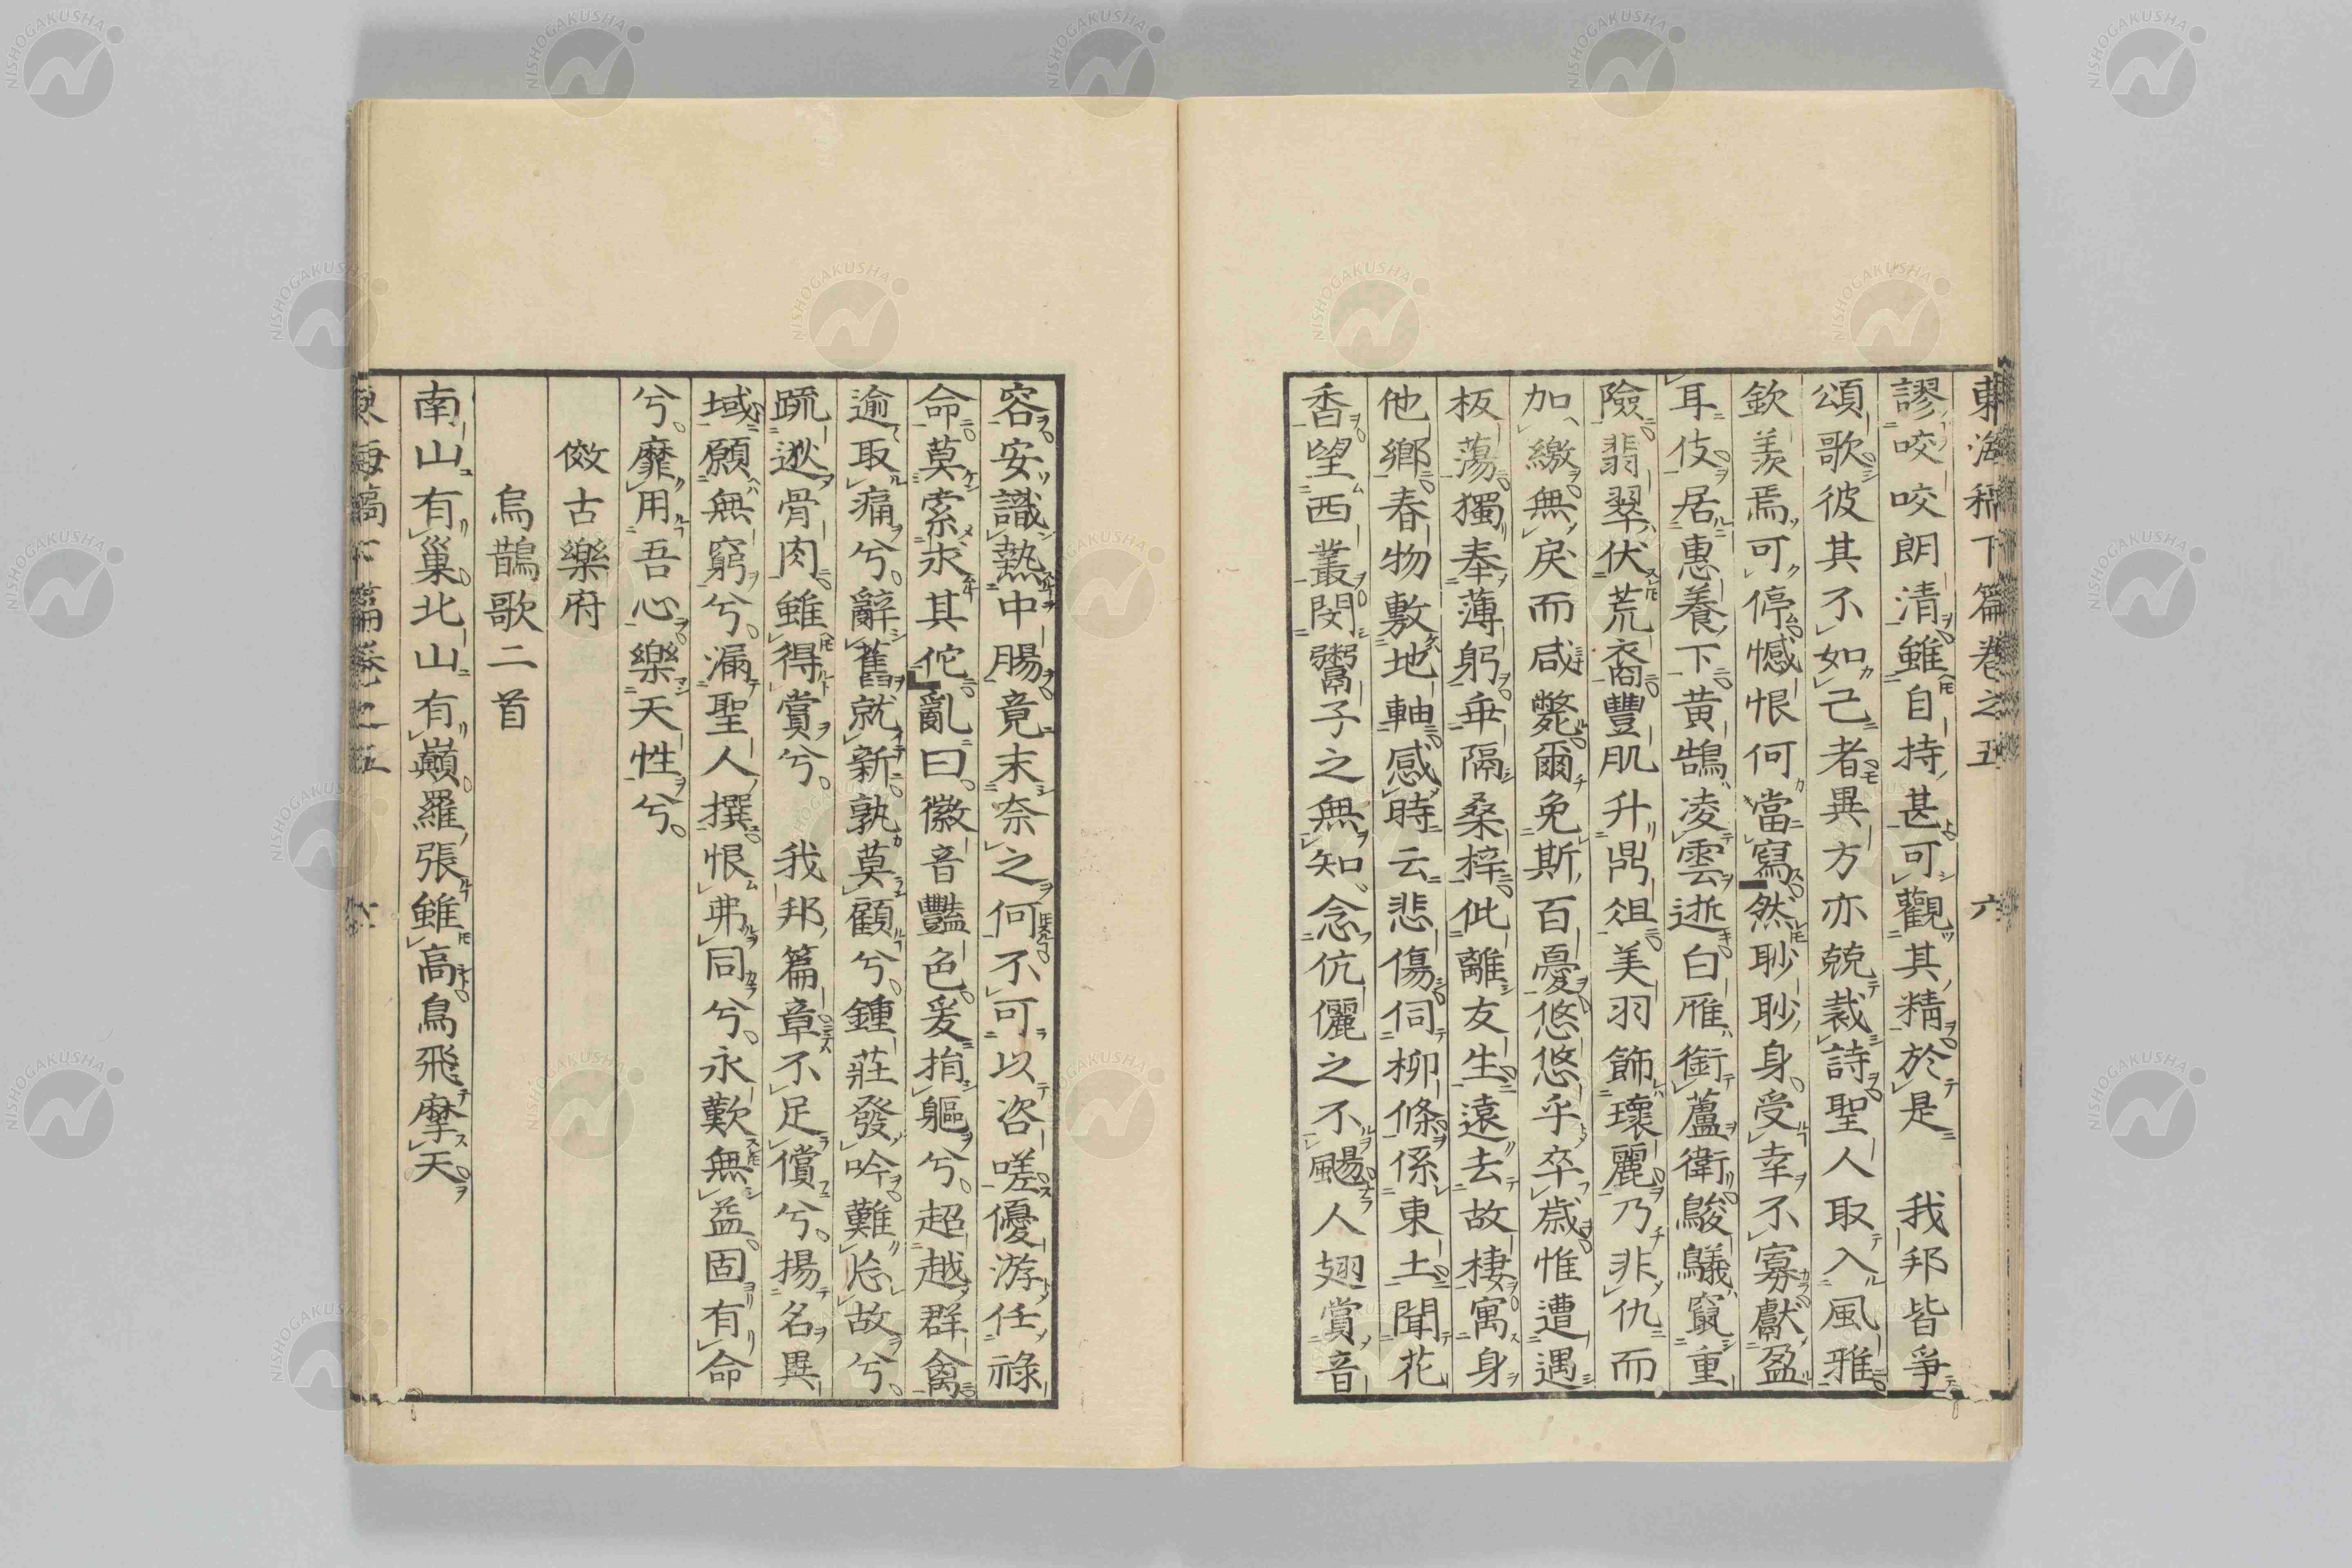 東海稿下篇卷之五 六
謬咬咬朗清雖自持甚可觀其精於是 我邦皆爭
頌歌彼其不如己者異方亦兢裁詩聖人取入風雅
欽羨焉可停憾恨何當寫然耿耿身受幸不寡獻盈
耳伎居惠養下黄鵠凌雲逝白雁銜蘆衛鵔鸃竄重
險翡翠伏荒裔豐肌升鼎俎美羽飾瓌麗乃非仇而
加繳無戾而咸斃爾免斯百憂悠悠乎卒歳惟遭遇
板蕩獨奉薄躬乖隔桑梓仳離友生遠去故棲寓身
他鄉春物敷地軸感時云悲傷伺柳條係東土聞花
香望西叢閔鬻子之無知念伉儷之不颺人翅賞音
容安識熱中腸竟末奈之何不可以咨嗟優游任祿
命莫索永其佗亂曰徽音豔色爰捐軀兮超越群禽
逾取痛兮辭舊就新孰莫顧兮鍾莊發吟難忘故兮
疏逖骨肉雖得賞兮 我邦篇章不足償兮揚名異
域願無窮兮漏聖人撰恨弗同兮永歎無益固有命
兮靡用吾心樂天性兮
傚古樂府
烏鵲歌二首
南山有巢北山有巓羅張雖高鳥飛摩天
東海稿下篇卷之五 六
NISHOGAKUSHA